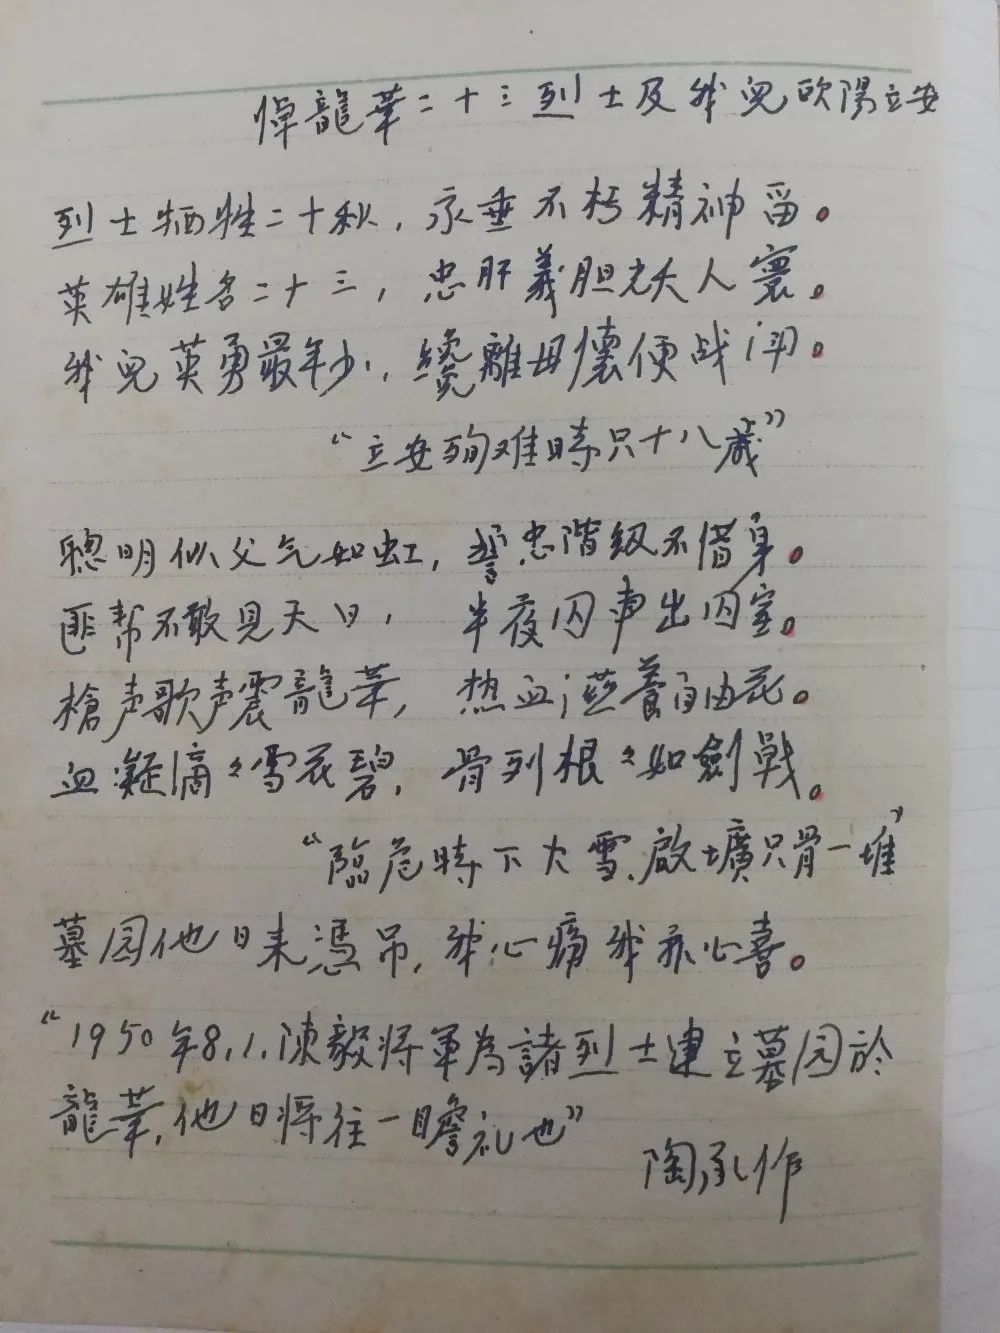 悼龍華二十三烈士及我兒歐陽立安
烈士牺牲二十秋，永垂不朽精神留。
英雄姓名二十三，忠肝義胆光天人寰。
我兒英勇最年少，纔離母懷便战斗。
“立安殉难時只十八歲”
聰明似父气如虹，誓忠階級不惜身。
匪幫不敢見天日，半夜囚車出囚室。
槍声歌声震龍華，热血滋養自由花。
血凝滴々雪花碧，骨列根々如劍戟。
“臨危時下大雪，啟壙只骨一堆”
墓园他日来憑吊，我心痛我亦心喜。
“1950年8.1.陳毅将軍為諸烈士建立墓园於
龍華，他日将往一瞻礼也”
陶承作